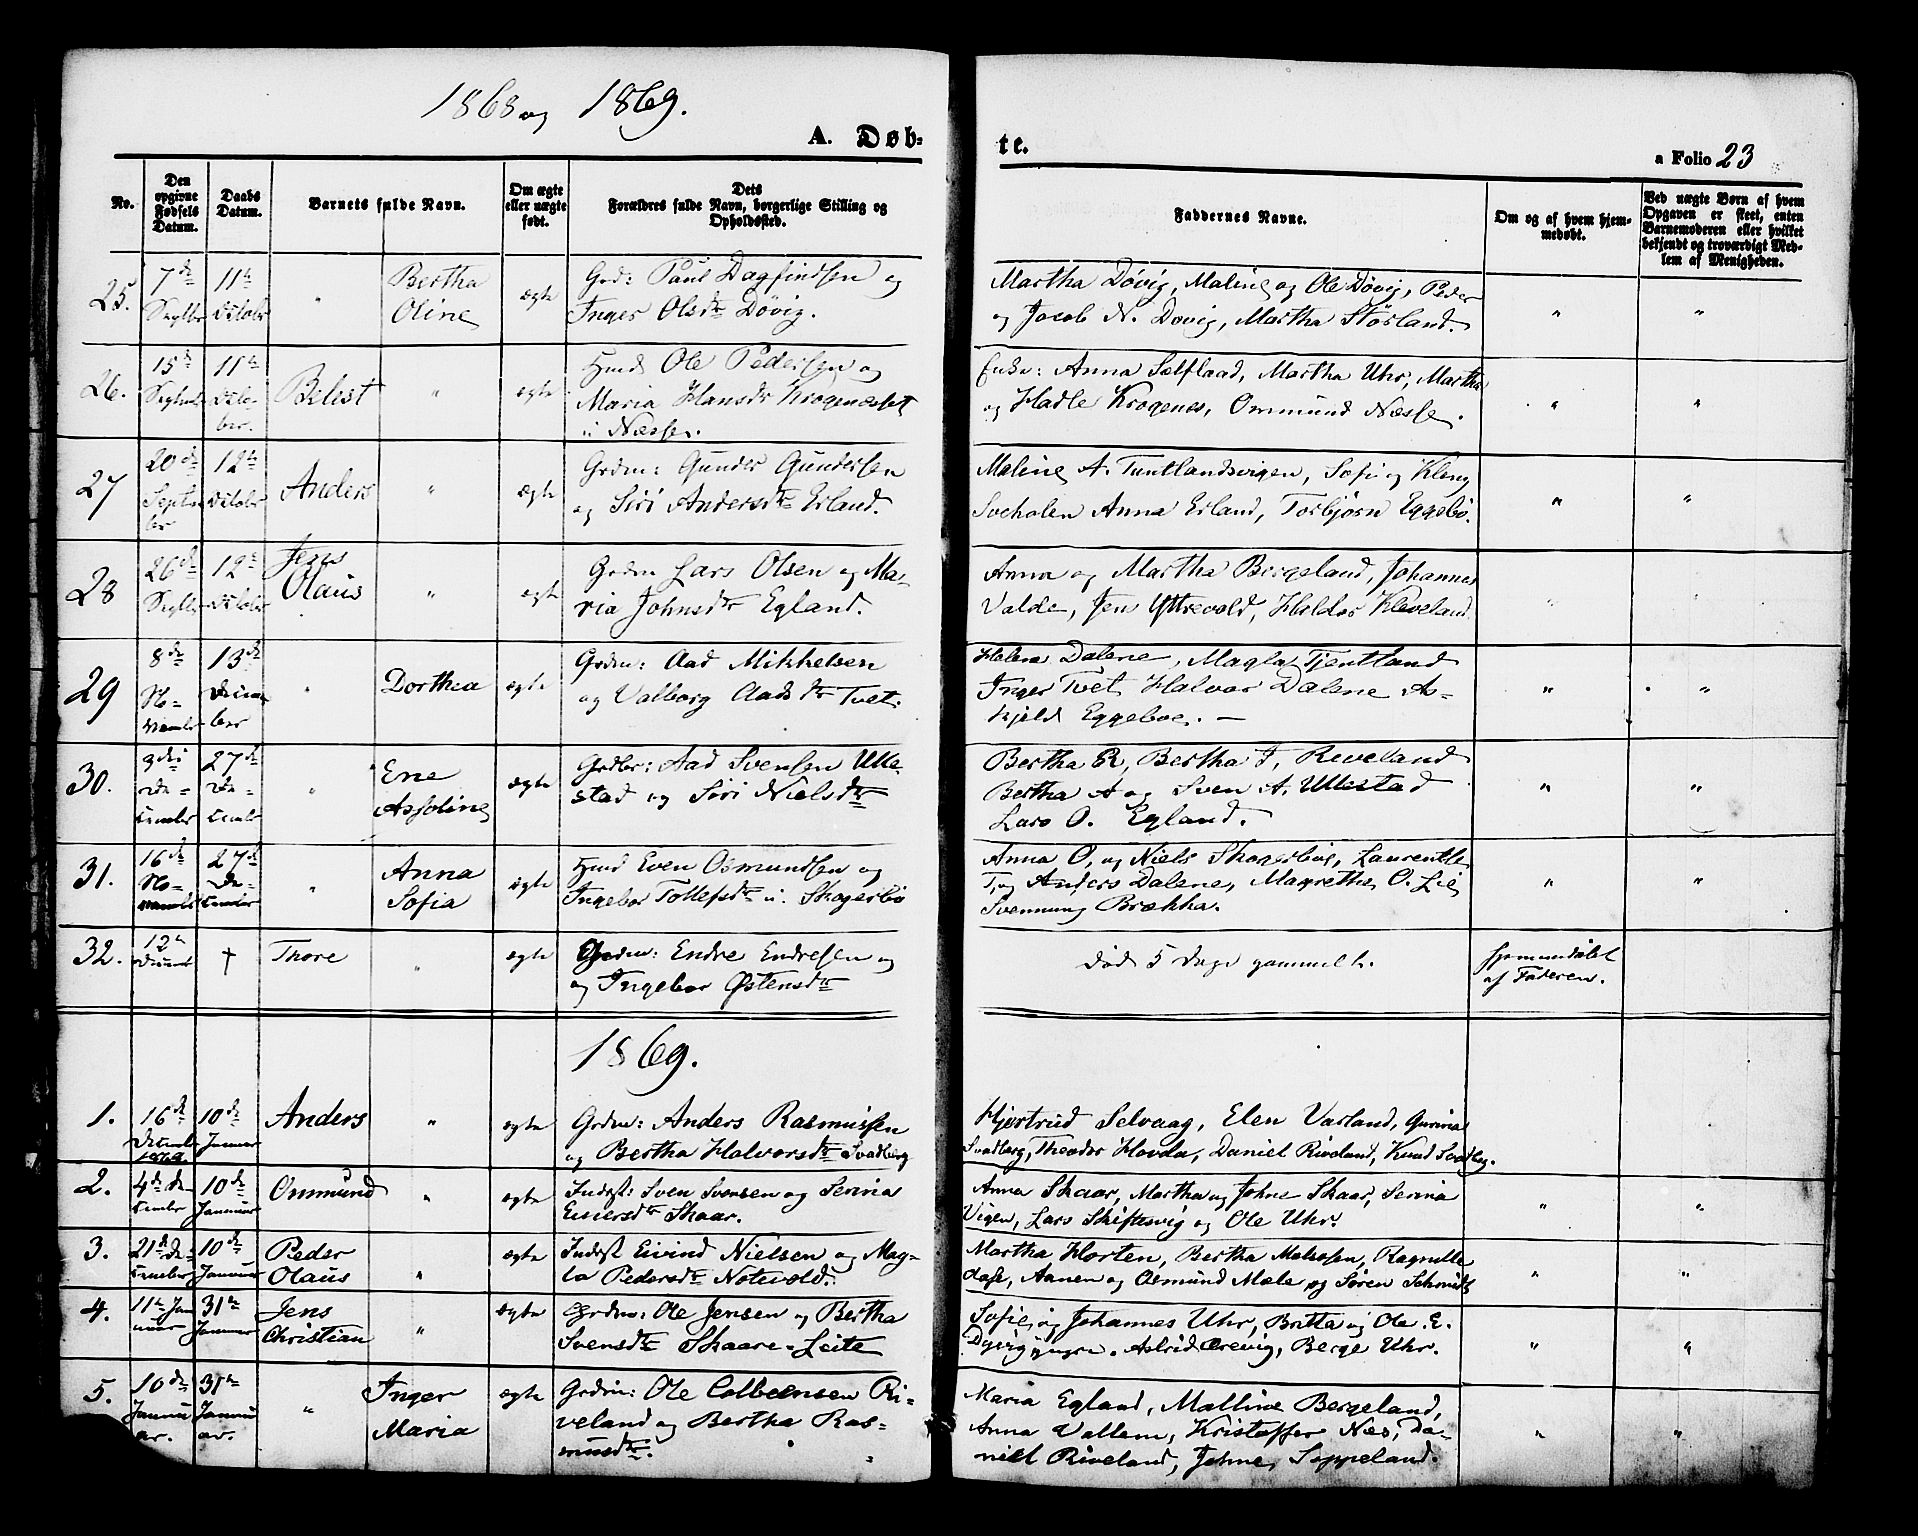 1868 og 1869.
A. Døb-
te.
a Folio 23
No.
Den opgivne Fødsels Datum.
Daabs Datum.
Barnets fulde Navn.
Om ægte eller uægte født.
Dets Forældres fulde Navn, borgerlige Stilling og Opholdssted.
Faddernes Navne.
Om og af hvem hjemmedøbt.
Ved uægte Børn af hvem Opgaven er skeet, enten Barnemoderen eller hvilket bekjendt og troværdigt Medlem af Menigheden.
25. 7de Septbr 11te Octobr " Bertha Oline ægte Grd: Paul Dagfindsen og
Inger Olsdtr Døvig.
Martha Døvig, Maline og Ole Døvig, Peder
og Jacob N. Døvig, Martha Størland. " "
26. 15de 11te October. Belest " ægte Huusd Ole Pedersen og
Maria Hansdr Krogenesset
u Næsse.
Enke: Anna Sælflaad, Martha Uhr, Martha
og Hadle Krogenes, Ommund Næsse. " "
27 20de September 12te Octobr Anders " ægte Grdm: Gunder Gundersen
og Siri Andersdtr Erland.
Maline A. Tuntlandsvigen, Sofi og Kleng
Soeholen Anna Erland, Torbjørn Eggebø. " "
28 26de Septbr 12te Octobr Jens Olaus " ægte Grdm Lars Olsen og Ma-
ria Johnsdtr Egland.
Anna og Martha Birgeland, Johannes
Valde, Jen Yttrevold, Haldor Kleveland " "
29 8de No- vember 13de December " Dorthea ægte Grdm: Aad Mikkelsen
og Valborg Aadsdtr Tvet.
Helena Dalene, Magla Tjentland
Inger Tvet Halvor Dalene As-
kjeld Eggeboe. — " "
30. 3die De- cember 27de De- cember " Ene Assoline ægte Grdbr: Aad Svensen Ulle-
stad og Siri Nielsdtr
Bertha R, Bertha J, Reveland
Bertha A og Sven A. Ullestad
Lars O. Egland. " "
31. 16de No- vember 27de De- cember " Anna Sofia ægte Huusd Even Osmundsen og
Ingebor Tollefsdtr u. Skogerbø
Anna O, og Niels Skogerbøe, Laurentze
T, og Anders Dalene, Magrethe O. Lie,
Svennung Brækka. " "
32. 12te Decembr † Thore " ægte Grdm: Endre Endresen og
og Ingebor Østensdtr
død 5 Dage gammelt.
hjemmedøbt
af Faderen.
1869.
1. 16de December 10de Januar Anders " ægte Grdm: Anders Rasmussen
og Bertha Halvorsdtr Svadberg
Hjertrud Selvaag, Elen Varland, Gurina
Svadberg, Theodor Hovda, Daniel Riveland, Knud Svadbeg.
2. 4de De- cembr 10de Januar Ommund " ægte Indest: Sven Svensen og Serina
Einersdtr Skaar.
Anna Skaar, Martha og Johne Skaar, Serina
Vigen, Lars Skiftesvig og Ole Uhr. " "
3. 21de De- cember 10de Januar Peder Olaus " ægte Indest Eivind Nielsen og Mag-
la Pedersdtr Notevold.
Martha Horten, Bertha Malsosen, Ragnille
dase, Aanen og Osmund Mæle, og Søren Schmidt " "
4. 11te Januar 31te Januar Jens Christian " ægte Grdm: Ole Jensen og Bertha
Svensdtr Skaare-Leite
Sofie, og Johannes Uhr, Britta og Ole E.
Døvig yngre. Astrid Ørevig, Berge Uhr. " "
5. 10de Januar. 31te Januar. " Inger Maria ægte Grdm: Ole Colbensen Ri-
veland og Bertha Ras-
musdtr.
Maria Egland, Malline Bergeland,
Anna Vallem, Kristoffer Næs, Da-
niel Riveland, Johne, Seppeland. " "